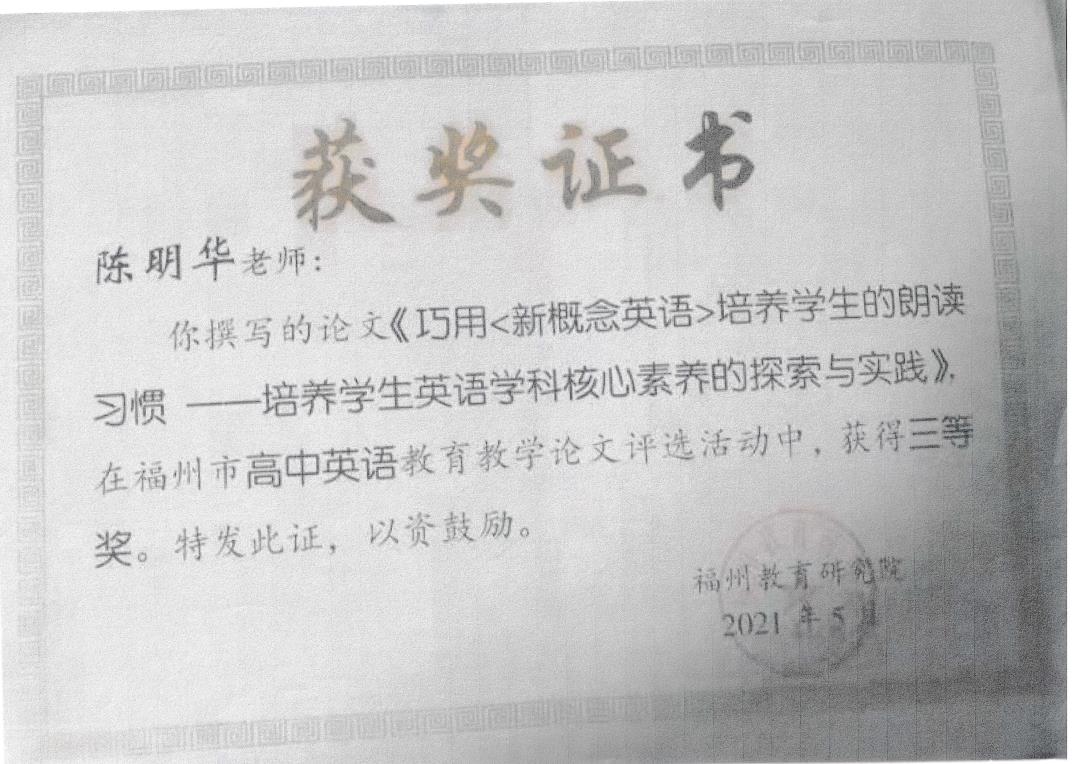 获奖证书
陈明华老师：
你撰写的论文《巧用<新概念英语>培养学生的朗读
习惯 ——培养学生英语学科核心素养的探索与实践》，
在福州市高中英语教育教学论文评选活动中，获得三等
奖。特发此证，以资鼓励。
福州教育研究院
2021 年 5 月